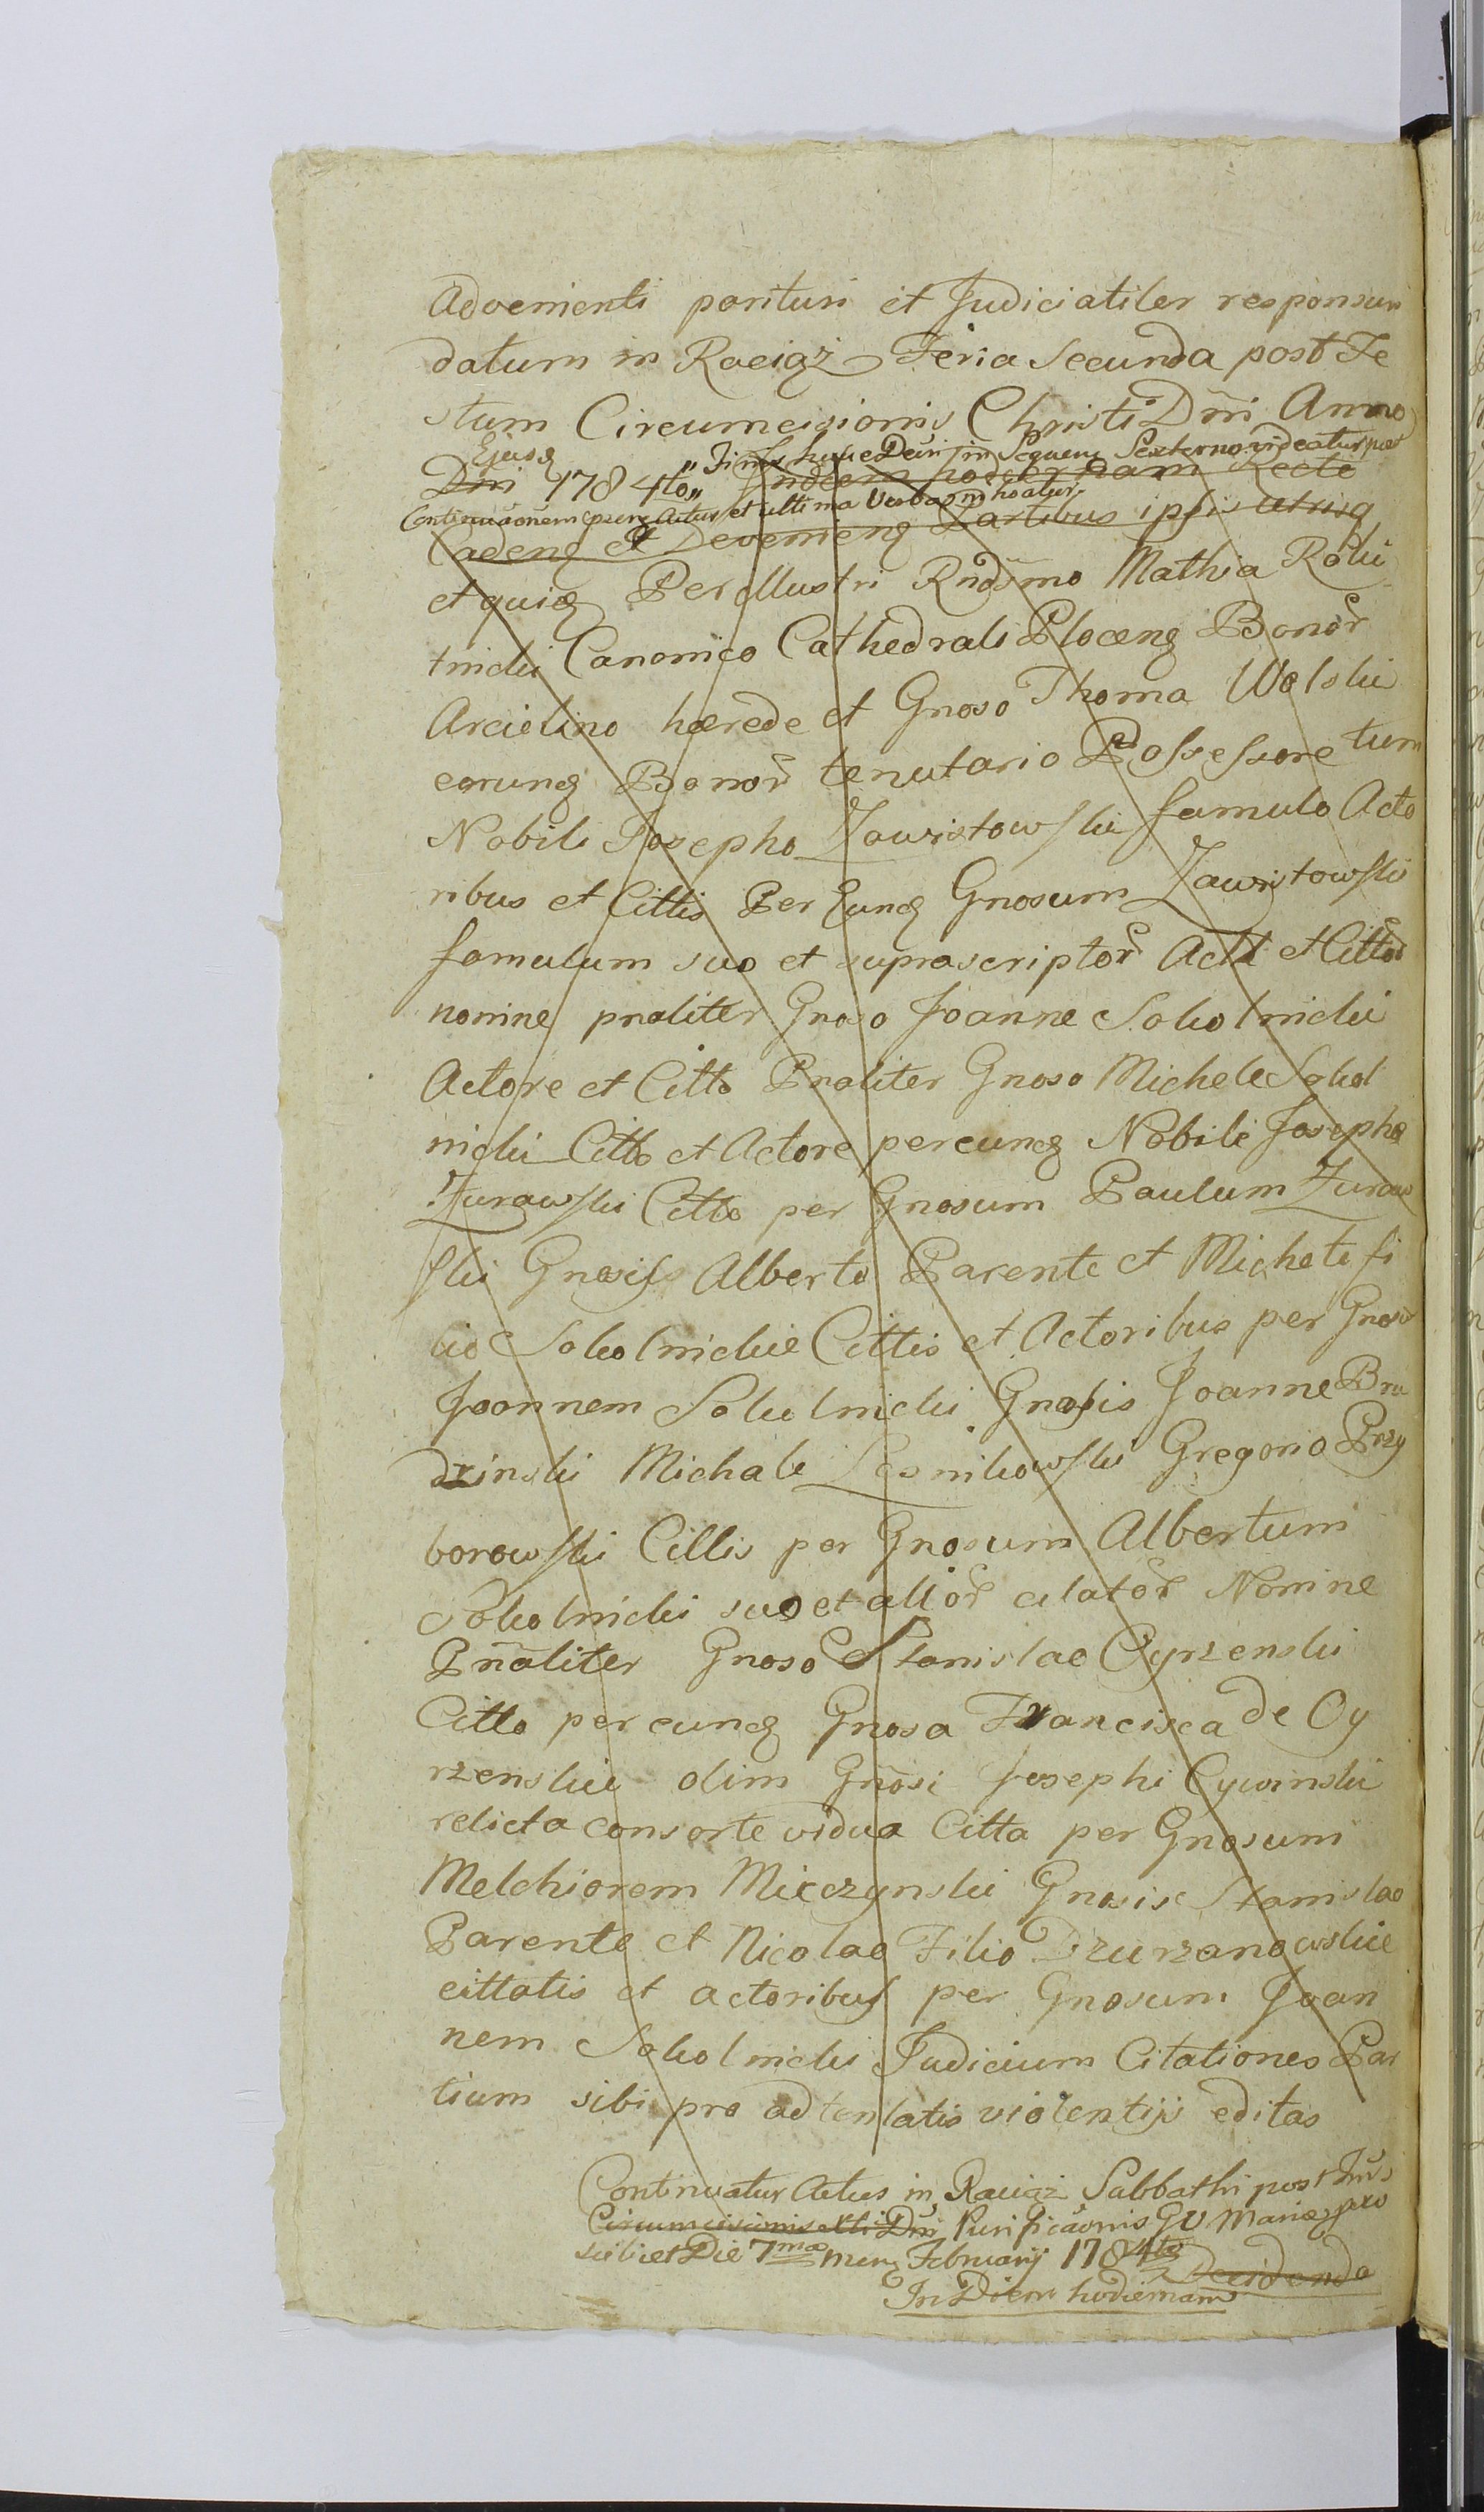 Advenienti parituri et Judicialiter responsuri
datum in Raciąż Feria Secunda post Fe
stum Circumcisionis Christi Dni Anno
Ejusd
Dni 1784to Finis hujus in Sequen Sexterno videatur per
In diem hodiernam Recte
Continuaōnem Actus et ultima Verba
Caden et Devenien Partibus ipsis utrisq
et quid Perillustri Rndsmo Mathia Roki
tnicki Canonico Cathedrali Plocen Bonor
Arcielino hærede et Gnoso Thoma Wolski
eorund Bonor tenutario Possessore tum
Nobili Josepho Zawistowski famulo Acto
ribus et Cittis Per Eund Gnosum Zawistowski
famulum suo et suprascriptor Act et Cittor
nomine pnaliter Gnoso Joanne Sokolnicki
Actore et Citto Pnaliter Gnoso Michele Sokol
nicki Citto et Actore per eund Nobili Josepho
Zurawski Citto per Gnosum Paulum Zuraw
ski Gnosis Alberto Parente et Michele fi
lio Sokolnickie Cittis et Actoribus per Gnosu
Joannem Sokolnicki Gnosis Joanne Bru
dzinski Michale Lesnikowski Gregorio Przy
borowski Cittis per Gnosum Albertum
Sokolnicki suo et alior citator Nomine
Pnaliter Gnoso Stanislao Cyrzenski
Citto per eund Gnosa Francisca de Cy
rzenskie olim Gnosi Josephi Cywinski
relicta consorte vidua Citta per Gnosum
Melchiorem Mieczynski Gnosis Stanislao
Parente et Nicolao Filio Dzurzanowskie
cittatis et actoribus per Gnosum Joan
nem Sokolnicki Judicium Citationes Par
tium sibi pro adtentatis violentijs editas
Continuatur Actus in Raciąż Sabbathi post
Circumcisionis Xti Dni Purificaōnis GV Mariæ
scilicet Die 7ma Men Februarij 1784to Decidenda
In Diem hodiernam